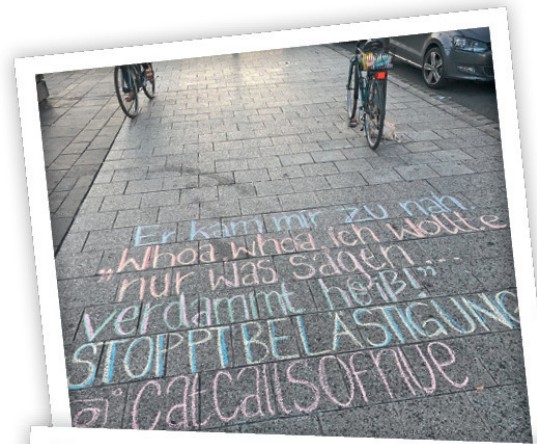 Er kam mir zu nah.
"Whoa, whoa, ich wollte
nur was sagen...
verdammt heiß!"
STOPPT BELÄSTIGUNG
@catcallsofnue